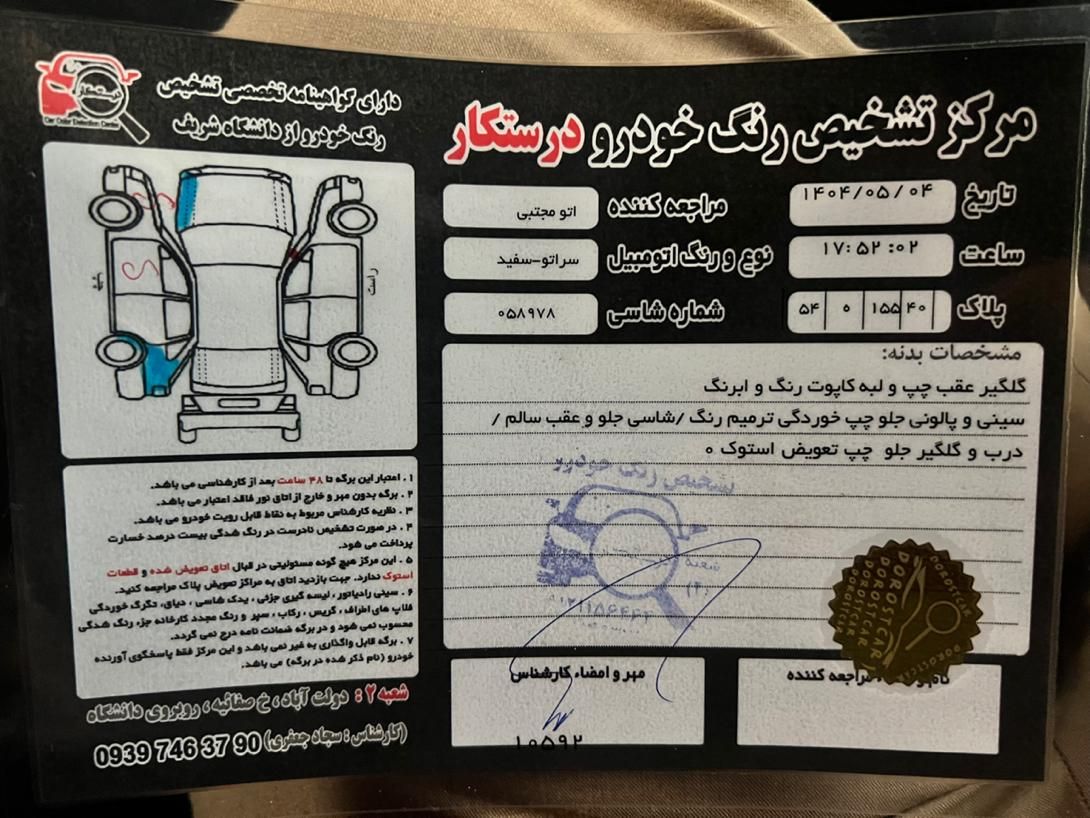 مرکز تشخیص رنگ خودرو درستکار
تاریخ ۱۴۰۴/۰۵/۰۴
مراجعه کننده اتو مجتبی
ساعت ۱۷:۵۲:۰۲
نوع و رنگ اتومبیل سراتو-سفید
پلاک ۵۴ ۰ ۱۵۵ ۴۰
شماره شاسی ۰۵۸۹۷۸
مشخصات بدنه:
گلگیر عقب چپ و لبه کاپوت رنگ و ابرنگ
سینی و پالونی جلو چپ خوردگی ترمیم رنگ /شاسی جلو و عقب سالم /
درب و گلگیر جلو چپ تعویض استوک ۰
تشخیص رنگ خودرو
شعبه
(۲)
DOROSTCAR
مهر و امضاء کارشناس
مراجعه کننده
۱۰۵۹۲
درستکار
Car Color Detection Center
دارای گواهینامه تخصصی تشخیص
رنگ خودرو از دانشگاه شریف
S
S
راست
۱. اعتبار این برگه تا ۴۸ ساعت بعد از کارشناسی می باشد.
۲. برگه بدون مهر و خارج از اتاق نور فاقد اعتبار می باشد.
۳. نظریه کارشناس مربوط به نقاط قابل رویت خودرو می باشد.
۴. در صورت تشخیص نادرست در رنگ شدگی بیست درصد خسارت
پرداخت می شود.
۵. این مرکز هیچ گونه مسئولیتی در قبال اتاق تعویض شده و قطعات
استوک ندارد. جهت بازدید اتاق به مراکز تعویض پلاک مراجعه کنید.
۶. سینی رادیاتور، لیسه گیری جزئی، یدک شاسی، دیاق، تگرگ خوردگی
قلاپ های اطراف، گریس، رکاب، سپر و رنگ مجدد کارخانه جزء رنگ شدگی
محسوب نمی شود و در برگه ضمانت نامه درج نمی گردد.
۷. برگه قابل واگذاری به غیر نمی باشد و این مرکز فقط پاسخگوی آورنده
خودرو (نام ذکر شده در برگه) می باشد.
شعبه ۲ : دولت آباد، خ صفائیه، روبروی دانشگاه
(کارشناس: سجاد جعفری) 0939 746 37 90